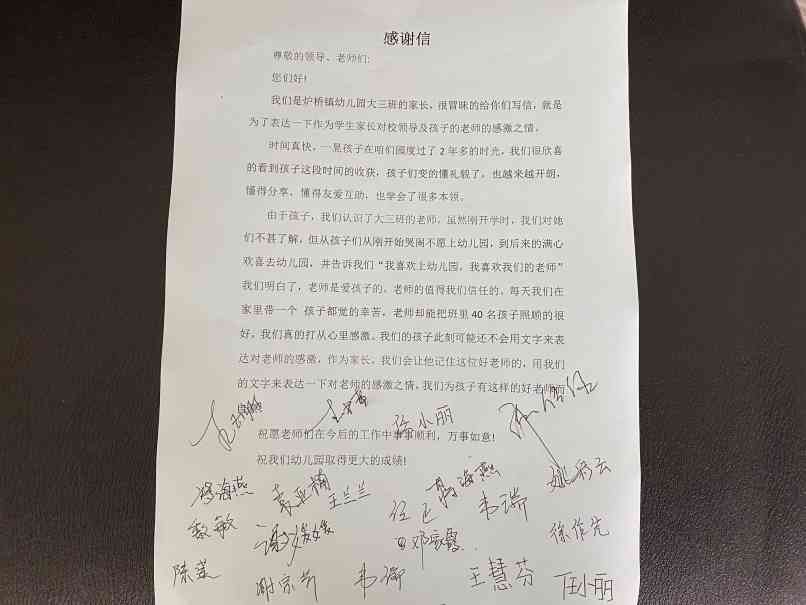 感谢信
尊敬的领导、老师们:
您们好!
我们是炉桥镇幼儿园大三班的家长，很冒昧的给你们写信，就是
为了表达一下作为学生家长对校领导及孩子的老师的感激之情。
时间真快，一晃孩子在咱们园度过了 2 年多的时光，我们很欣喜
的看到孩子这段时间的收获，孩子们变的懂礼貌了，也越来越开朗，
懂得分享、懂得友爱互助，也学会了很多本领。
由于孩子，我们认识了大三班的老师。虽然刚开学时，我们对她
们不甚了解，但从孩子们从刚开始哭闹不愿上幼儿园，到后来的满心
欢喜去幼儿园，并告诉我们“我喜欢上幼儿园，我喜欢我们的老师”
我们明白了，老师是爱孩子的。老师的值得我们信任的。每天我们在
家里带一个 孩子都觉的辛苦，老师却能把班里 40 名孩子照顾的很
好，我们真的打从心里感激。我们的孩子此刻可能还不会用文字来表
达对老师的感激，作为家长，我们会让他记住这位好老师的，用我们
的文字来表达一下对老师的感激之情，我们为孩子有这样的好老师而
徐小丽
祝愿老师们在今后的工作中事事顺利，万事如意!
祝我们幼儿园取得更大的成绩!
冯海燕 袁亚楠 王兰兰 海燕 姚彩云
黎敏 谢媛媛 邓 韦瑞 徐作先
陈 谢宗芳 韦瑞 王慧芬 任小丽